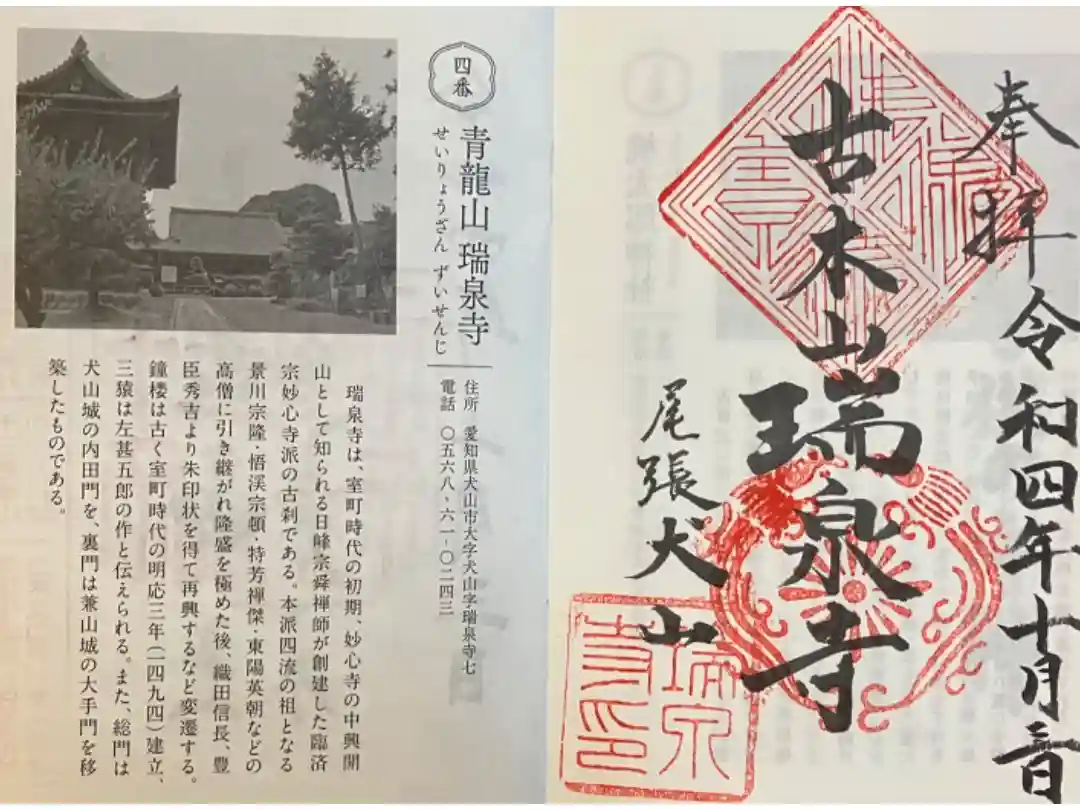 奉拝 令和四年十月三日
古本山瑞泉寺
尾張犬山
瑞泉
寺印
四番
青龍山 瑞泉寺
せいりょうざん ずいせんじ
住所 愛知県犬山市大字犬山字瑞泉寺七
電話 〇五六八-六一-〇二四三
瑞泉寺は、室町時代の初期、妙心寺の中興開
山として知られる日峰宗舜禅師が創建した臨済
宗妙心寺派の古刹である。本派四流の祖となる
景川宗隆・悟溪宗頓・特芳禅傑・東陽英朝などの
高僧に引き継がれ隆盛を極めた後、織田信長、豊
臣秀吉より朱印状を得て再興するなど変遷する。
鐘楼は古く室町時代の明応三年(一四九四)建立、
三猿は左甚五郎の作と伝えられる。また、総門は
犬山城の内田門を、裏門は兼山城の大手門を移
築したものである。